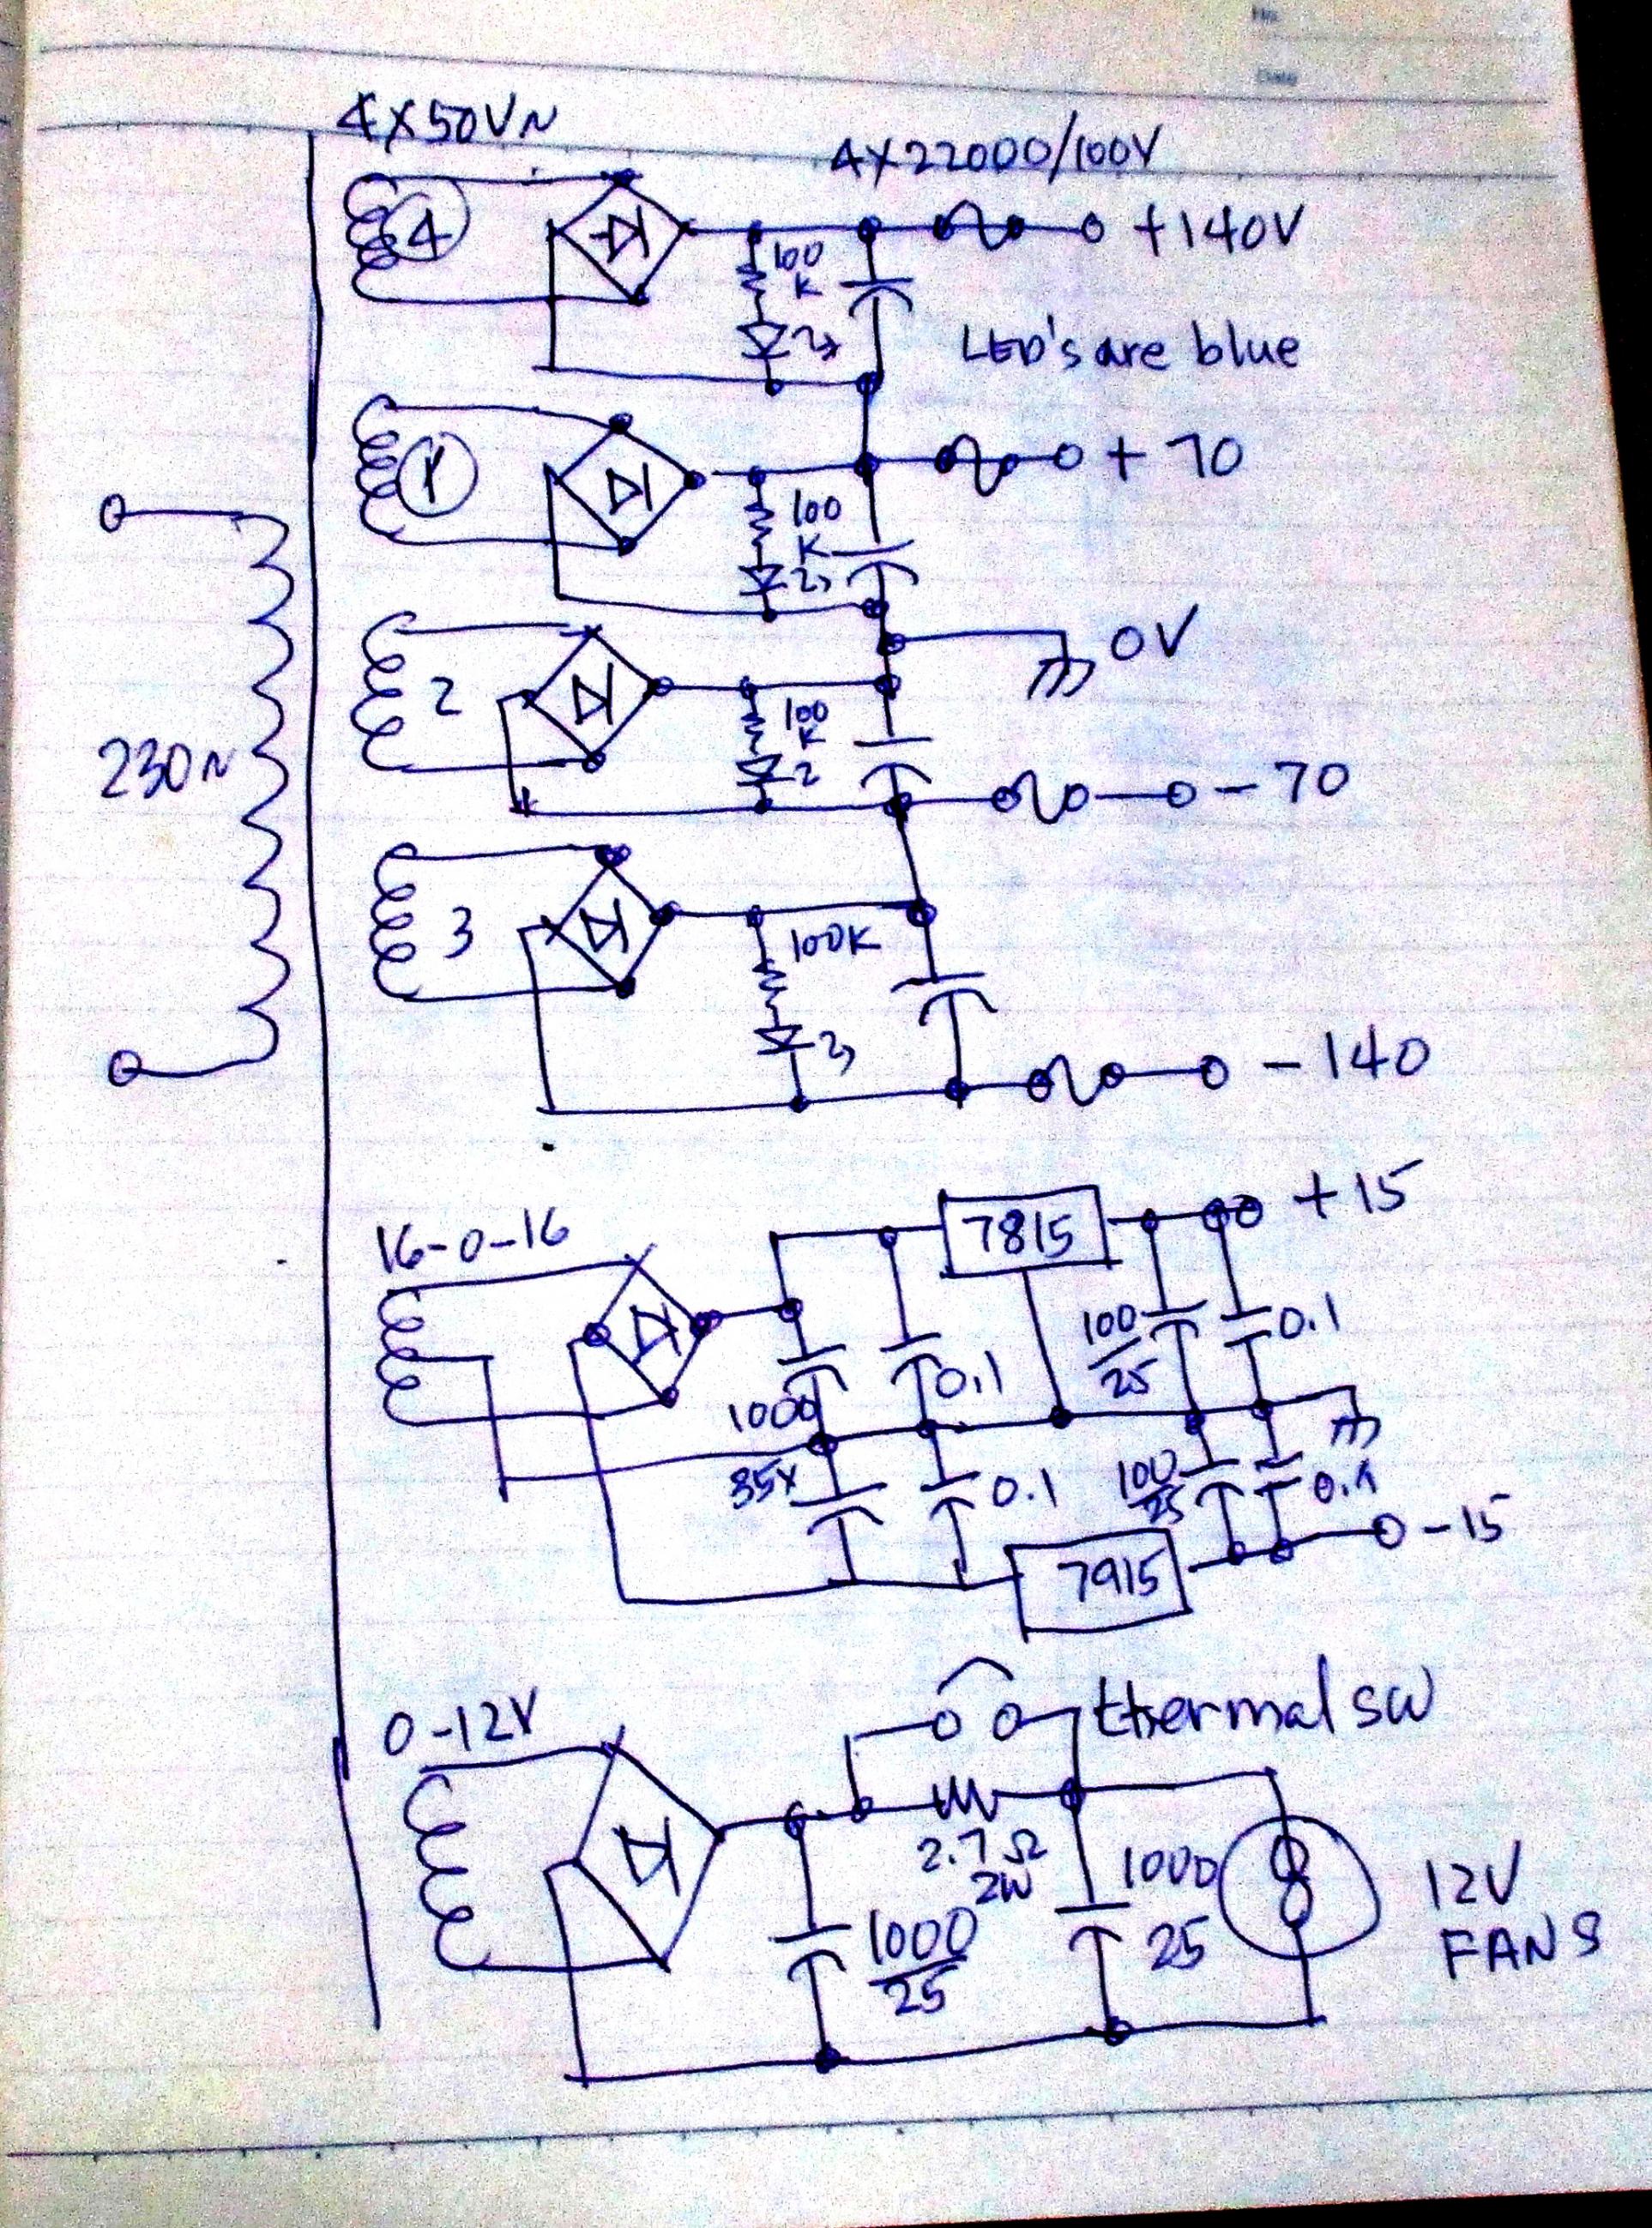 No.
Date
4X50V~
4X22000/100V
4
+140V
100
K
LED's are blue
1
+70
100
K
0V
2
100
K
230~
-70
3
100K
-140
16-0-16
7815
+15
100
25
0.1
0.1
1000
35V
0.1
100
25
0.1
7915
-15
0-12V
thermal SW
2.7Ω
2W
1000
25
1000
25
12V
FANS